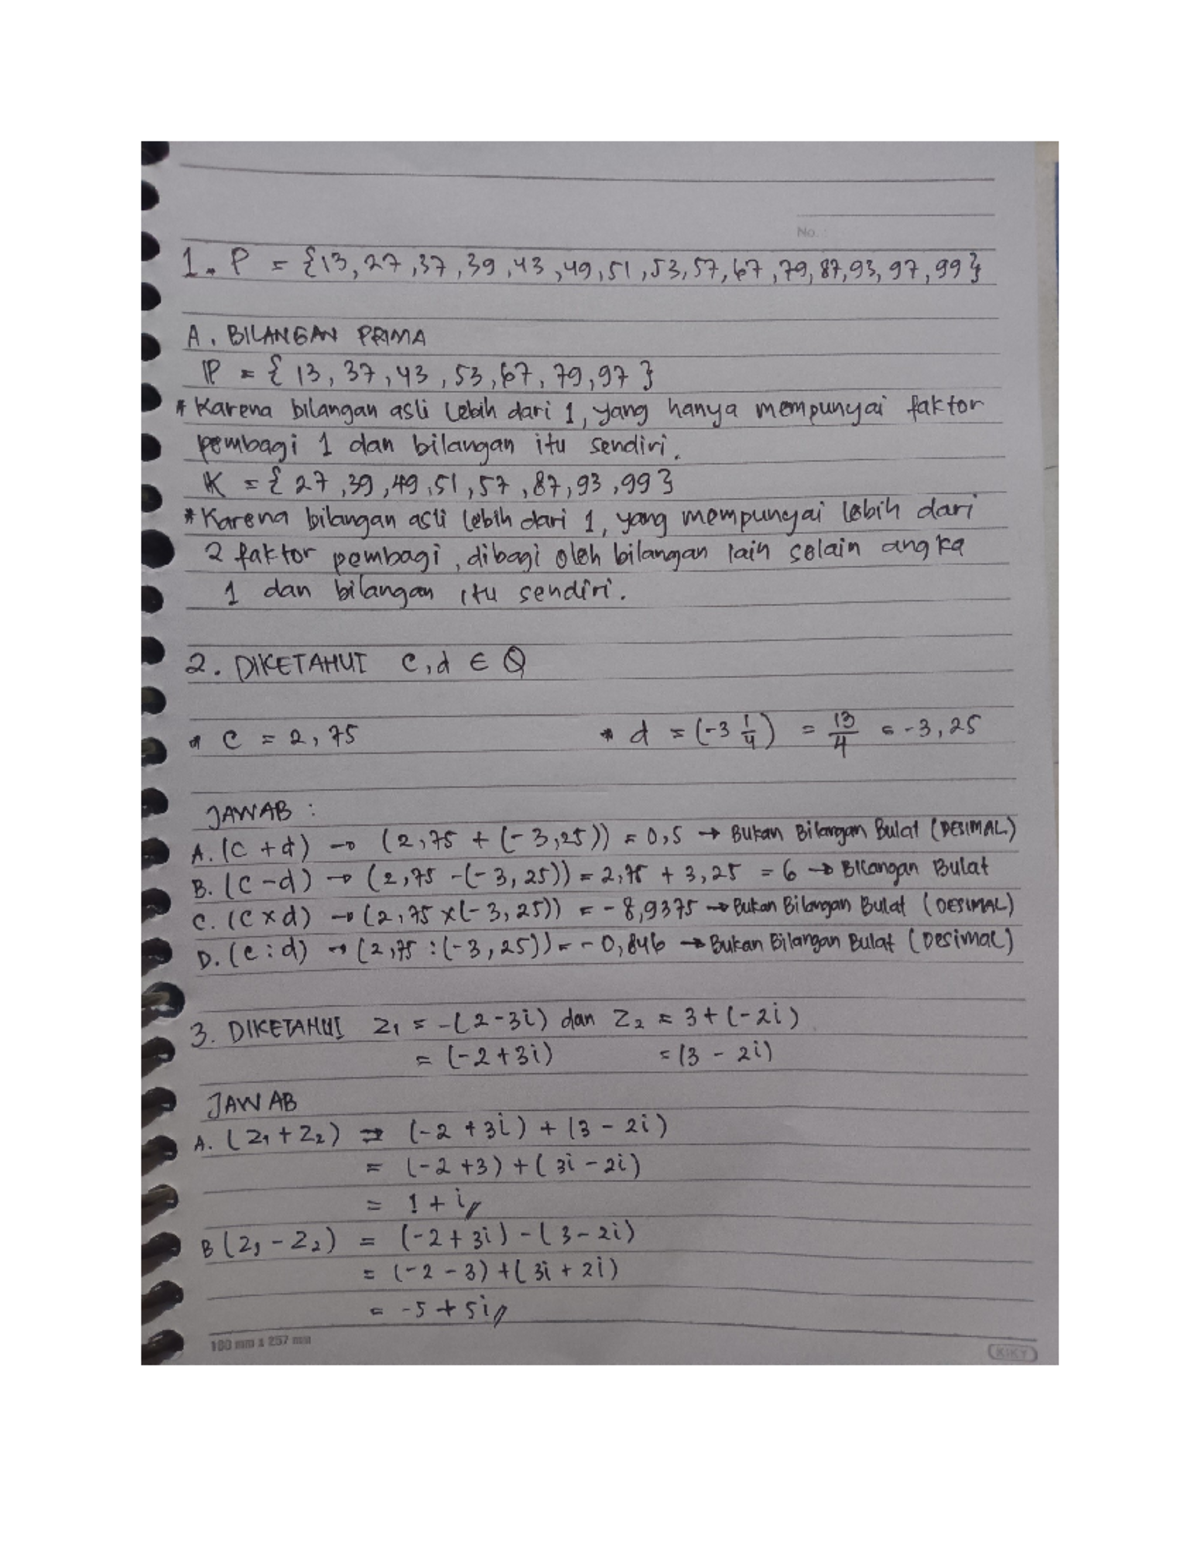 No.
1. P = {13, 27, 37, 39, 43, 49, 51, 53, 57, 67, 79, 87, 93, 97, 99}
A. BILANGAN PRIMA
IP = { 13, 37, 43, 53, 67, 79, 97 }
* Karena bilangan asli lebih dari 1, yang hanya mempunyai faktor
pembagi 1 dan bilangan itu sendiri.
K = { 27, 39, 49, 51, 57, 87, 93, 99 }
* Karena bilangan asli lebih dari 1, yang mempunyai lebih dari
2 faktor pembagi, dibagi oleh bilangan lain selain angka
1 dan bilangan itu sendiri.
2. DIKETAHUI c, d ∈ Q
* c = 2,75 * d = (-3 1/4) = 13/4 = -3,25
JAWAB :
A. (c + d) → (2,75 + (-3,25)) = 0,5 → Bukan Bilangan Bulat (DESIMAL)
B. (c - d) → (2,75 - (-3,25)) = 2,75 + 3,25 = 6 → Bilangan Bulat
C. (c x d) → (2,75 x (-3,25)) = -8,9375 → Bukan Bilangan Bulat (DESIMAL)
D. (c : d) → (2,75 : (-3,25)) = -0,846 → Bukan Bilangan Bulat (Desimal)
3. DIKETAHUI Z₁ = -(2-3i) dan Z₂ = 3+(-2i)
= (-2+3i) = (3 - 2i)
JAWAB
A. (Z₁ + Z₂) ⇒ (-2 + 3i) + (3 - 2i)
= (-2 + 3) + (3i - 2i)
= 1 + i
B (Z₁ - Z₂) = (-2 + 3i) - (3 - 2i)
= (-2 - 3) + (3i + 2i)
= -5 + 5i
180 mm x 257 mm
KIKY